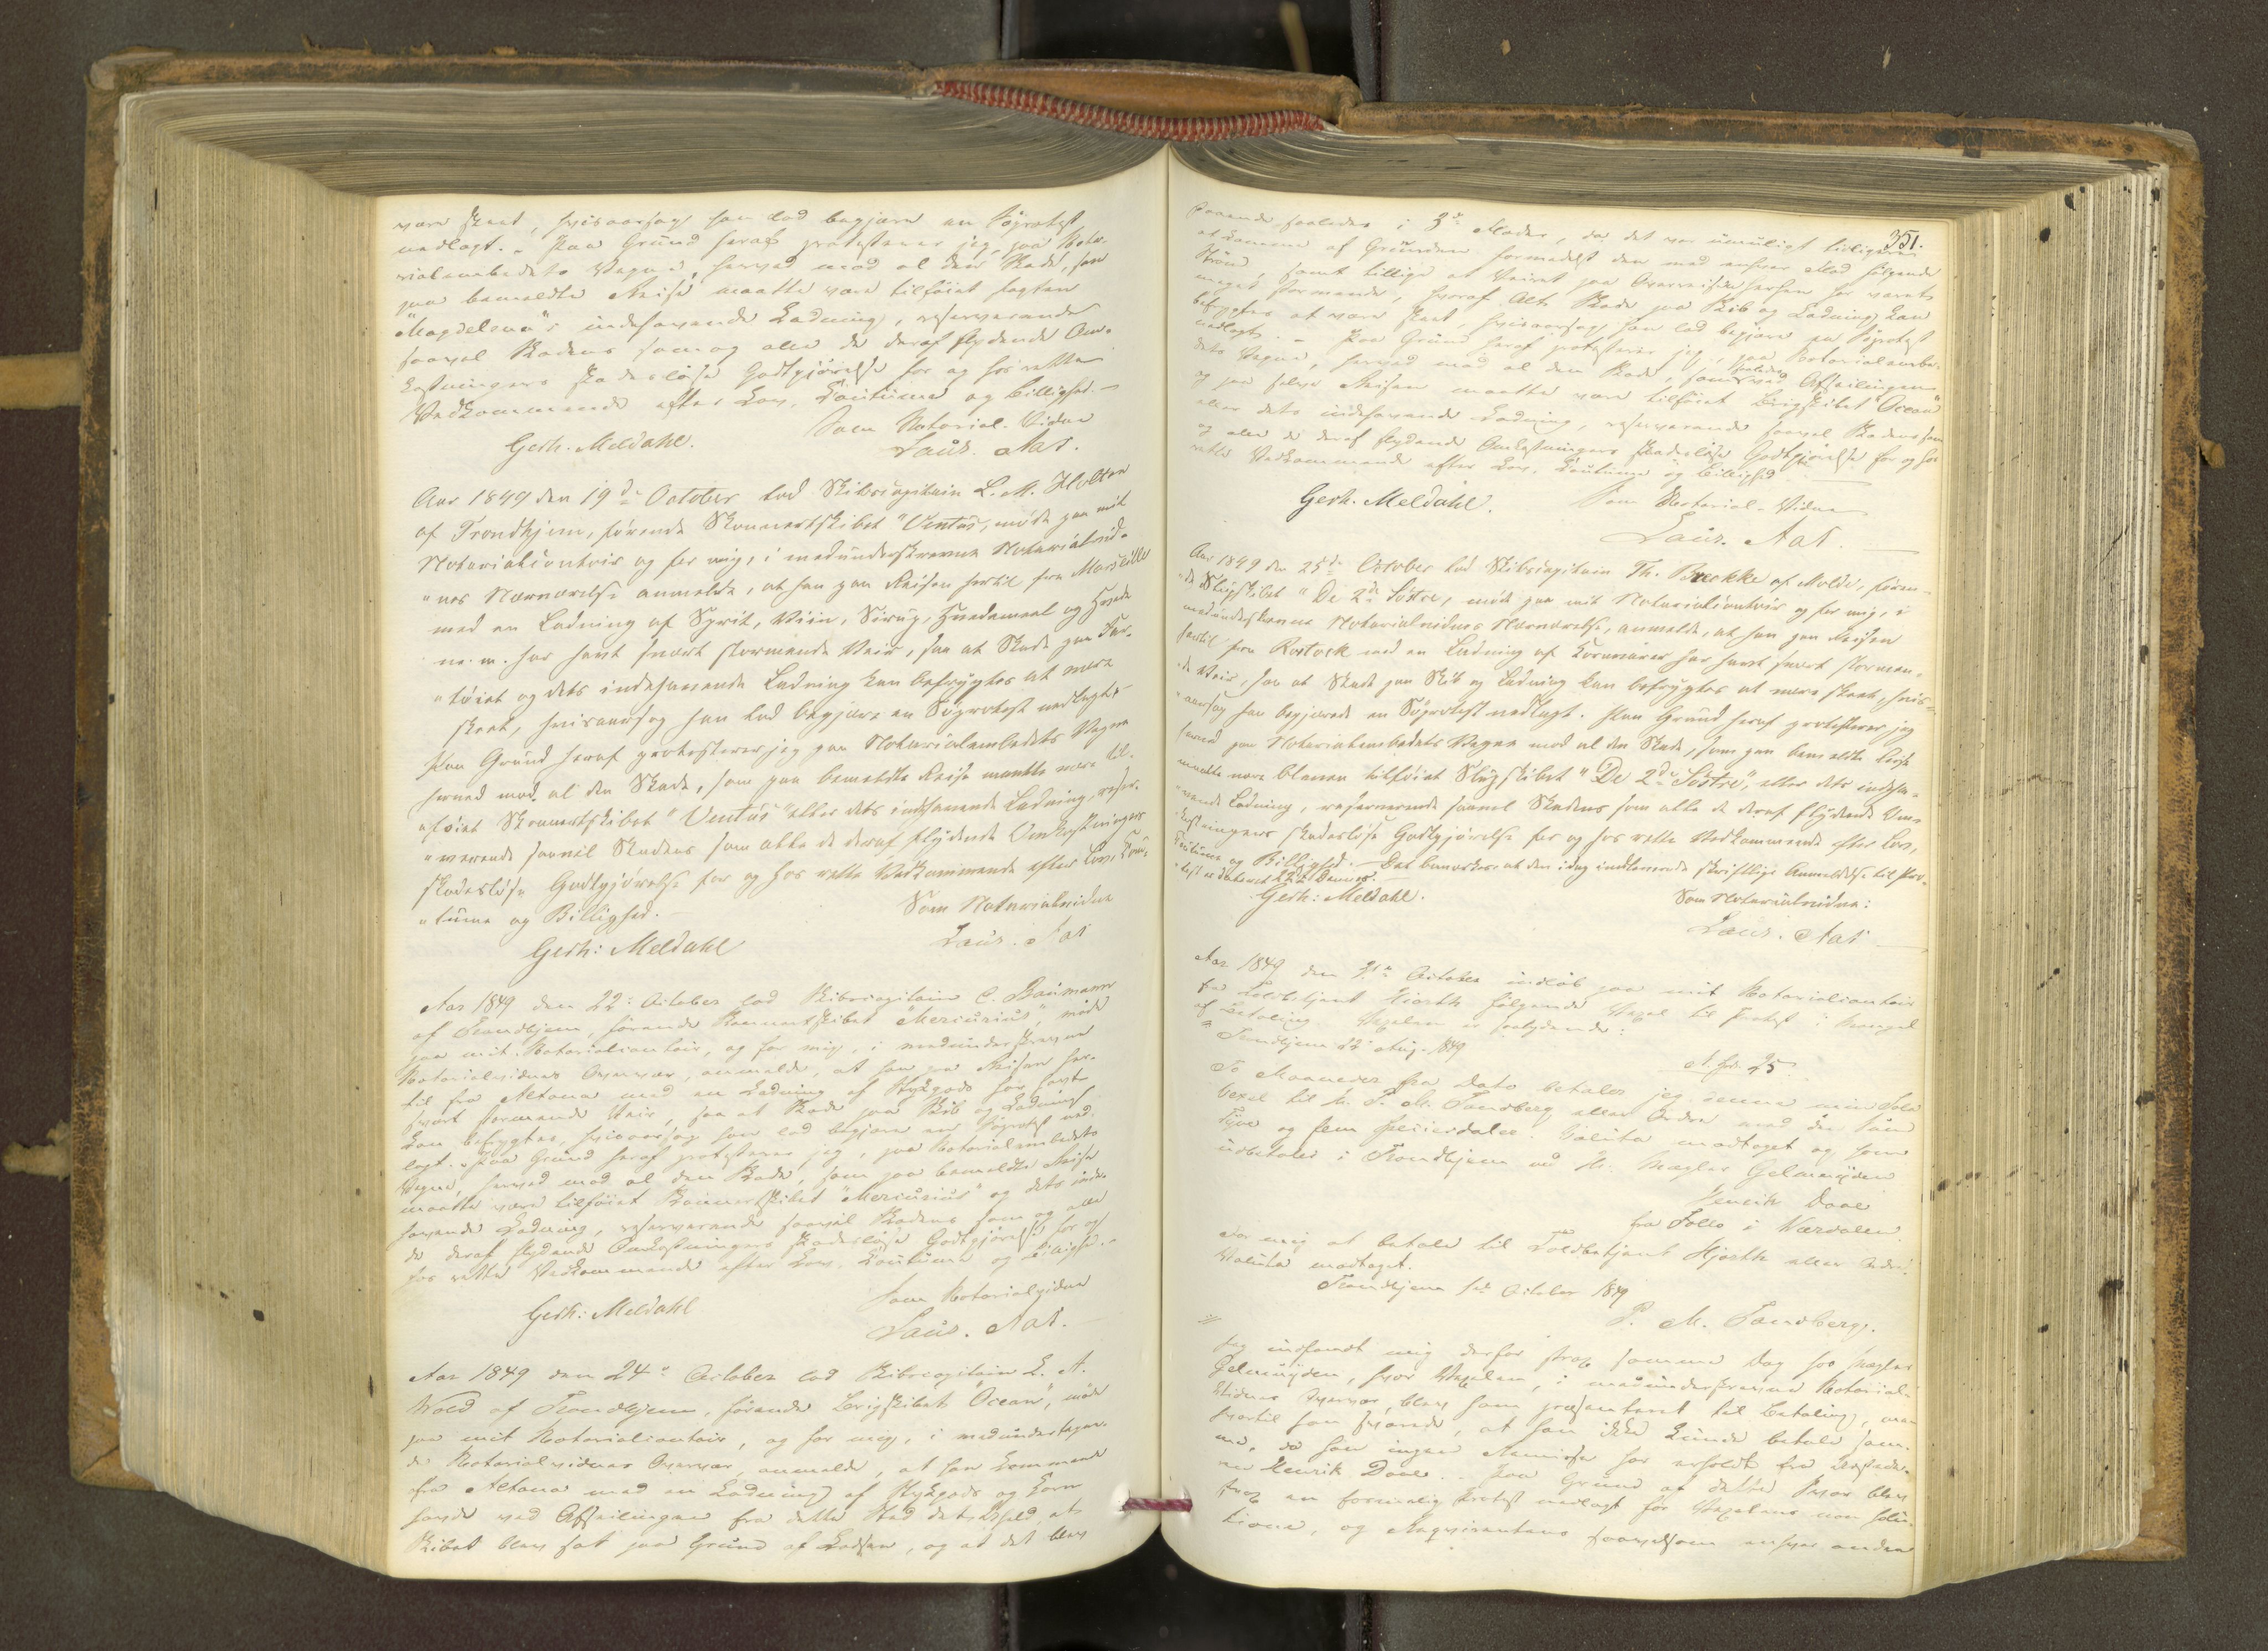 være skeet, hvisaarsag han lod begjære en Söprotest
nedlagt. – Paa Grund heraf protesterer jeg, paa Nota-
rialembedets Vegne, herved mod al den Skade, som
paa bemeldte Reise maatte være tilföiet Jagten
"Magdelena"s indehavende Ladning, reserverende
saavel Skadens som og alle de deraf flydende Om-
kostningers skadeslöse Godtgjörelse for og hos rette
Vedkommende efter Lov, Coutume og Billighed. –
Som Notorial-Vidne
Gerh. Meldahl. Laur. Aas.
Aar 1849 den 19de October lod Skibscapitain L. M. Holten
af Trondhjem, förende Skonnertskibet "Ventus", möde paa mit
Notarialcontoir og for mig, i medunderskrevne Notarialvid-
"nes Nærværelse anmelde, at han paa Reisen hertil fra Marseille
med en Ladning af Sprit, Viin, Sirup, Hvedemeel og Hvede
m. m. har havt svært stormende Veir, saa at Skade paa Far-
"töiet og dets indehavende Ladning kan befrygtes at være
skeet, hvisaarsag han lod begjære en Söprotest nedlagt. –
Paa Grund heraf protesterer jeg paa Notarialembedets Vegne
herved mod al den Skade, som paa bemeldte Reise maatte være til-
"föiet Skonnertskibet "Ventus" eller dets indehavende Ladning, reser-
"verende saavel Skadens som alle de deraf flydende Omkostningers
skadeslöse Godtgjörelse for og hos rette Vedkommende efter Lov, Cou-
"tume og Billighed. –
Som Notarialvidne
Gerh: Meldahl Laur. Aas
Aar 1849 den 22: October lod Skibscapitain C. Baumann
af Trondhjem, förende Skonnertskibet "Mercurius", möde
paa mit Notorialcontoir, og for mig, i medunderskrevne
Notorialvidnes Overvær, anmelde, at han paa Reisen her-
til fra Altona med en Ladning af Stykgods har havt
svært stormende Veir, saa at Skade paa Skib og Ladning
kan befrygtes, hvisaarsag han lod begjære en Söprotest ned-
lagt. – Paa Grund heraf protesterer jeg, paa Notorialembedets
Vegne, herved mod al den Skade, som paa bemeldte Reise
maatte være tilföiet Skonnertskibet "Mercurius" og dets inde-
havende Ladning, reserverende saavel Skadens som og alle
de deraf flydende Omkostningers skadeslöse Godtgjörelse for og
hos rette Vedkommende efter Lov, Coutume og Billighed. –
Som Notorialvidne
Gerh: Meldahl Laur. Aas. –
Aar 1849 den 24: October lod Skibscapitain L. A.
Wold af Trondhjem, förende Brigskibet "Ocean", möde
paa mit Notorialcontoir, og for mig, i medundertegne-
de Notorialvidnes Overvær, anmelde, at han kommende
fra Altona med en Ladning af Stykgods og Korn
havde ved Afseilingen fra dette Sted det Uheld, at
Skibet blev sat paa Grund af Lodsen, og at det blev
351.
staaende saaledes i 3de Steder, da det var umuligt tidligere
at komme af Grunden formedelst den med enhver Flod fölgende
Ström, samt tillige at Veiret paa Overreisen hertil har været
meget stormende, hvoraf Alt Skade paa Skib og Ladning kan
befrygtes at være skeet, hvisaarsag han lod begjære en Söprotest
nedlagt. – Paa Grund heraf protesterer jeg, paa Notorialembe-
dets Vegne, herved mod al den Skade, som saaledes ved Afseilingen
og paa selve Reisen maatte være tilföiet Brigskibet "Ocean"
eller dets indehavende Ladning, reserverende saavel Skadens som
og alle de deraf flydende Omkostningers skadeslöse Godtgjörelse for og hos
rette Vedkommende efter Lov, Coutume og Billighed. –
Gerh. Meldahl. Som Notorial-Vidne
Laur. Aas.
Aar 1849 den 25de October lod Skibscapitain Th. Brekke af Molde, fören-
"de Slupskibet "De 2de Söstre", möde paa mit Notarialcontoir og for mig, i
medunderskrevne Notarialvidnes Nærværelse, anmelde, at han paa Reisen
hertil fra Rostock med en Ladning af Kornvarer har havt svært stormen-
"de Veir, saa at Skade paa Skib og Ladning kan befrygtes at være skeet, hvis-
"aarsag han begjærede en Söprotest nedlagt. Paa Grund heraf protesterer jeg
herved paa Notarialembedets Vegne mod al den Skade, som paa bemeldte Reise
maatte være bleven tilföiet Slupskibet "De 2de Söstre", eller dets indeha-
"vende Ladning, reserverende saavel Skadens som alle de deraf flydende Om-
"kostningers skadeslöse Godtgjörelse for og hos rette Vedkommende efter Lov,
Coutume og Billighed. – Det bemærkes at den idag indkomne skriftlige Anmeldelse til Pro-
"test er dateret 22de Dennes. –
Gerh: Meldahl. Som Notarialvidne:
Laur. Aas
Aar 1849 den 31te October indlöb paa mit Notorialcontoir
fra Toldbetjent Hjorth fölgende Vexel til Protest i Mangel
af Betaling. Vexelen er saalydende:
"Trondhjem 22 Aug. 1849
25
To Maaneder fra Dato betaler jeg denne min Sola
Vexel til Hr. P. M. Sandberg eller Ordre med den Sum
Tyve og fem Speciesdaler. Valuta modtaget og som
udbetales i Trondhjem ved Hr. Mægler Gelmuyden
Henrik Daae
fra Sollo i Værdalen.
For mig at betale til Toldbetjent Hjorth eller Ordre.
Valuta modtaget.
Trondhjem 1ste October 1849
P. M. Sandberg.
Jeg indfandt mig derfor strax samme Dag hos Mægler
Gelmuyden, hvor Vexelen, i medunderskrevne Notorial-
Vidnes Overvær, blev ham præsenteret til Betaling, men
hvortil han svarede, at han ikke kunde betale sam-
me, da han ingen Remisse har erholdt fra Udstede-
ren Henrik Daae. – Paa Grund af dette Svar blev
strax en formelig Protest nedlagt for Vexelens non solu-
tione, og Reqvirentens saavelsom enhver anden